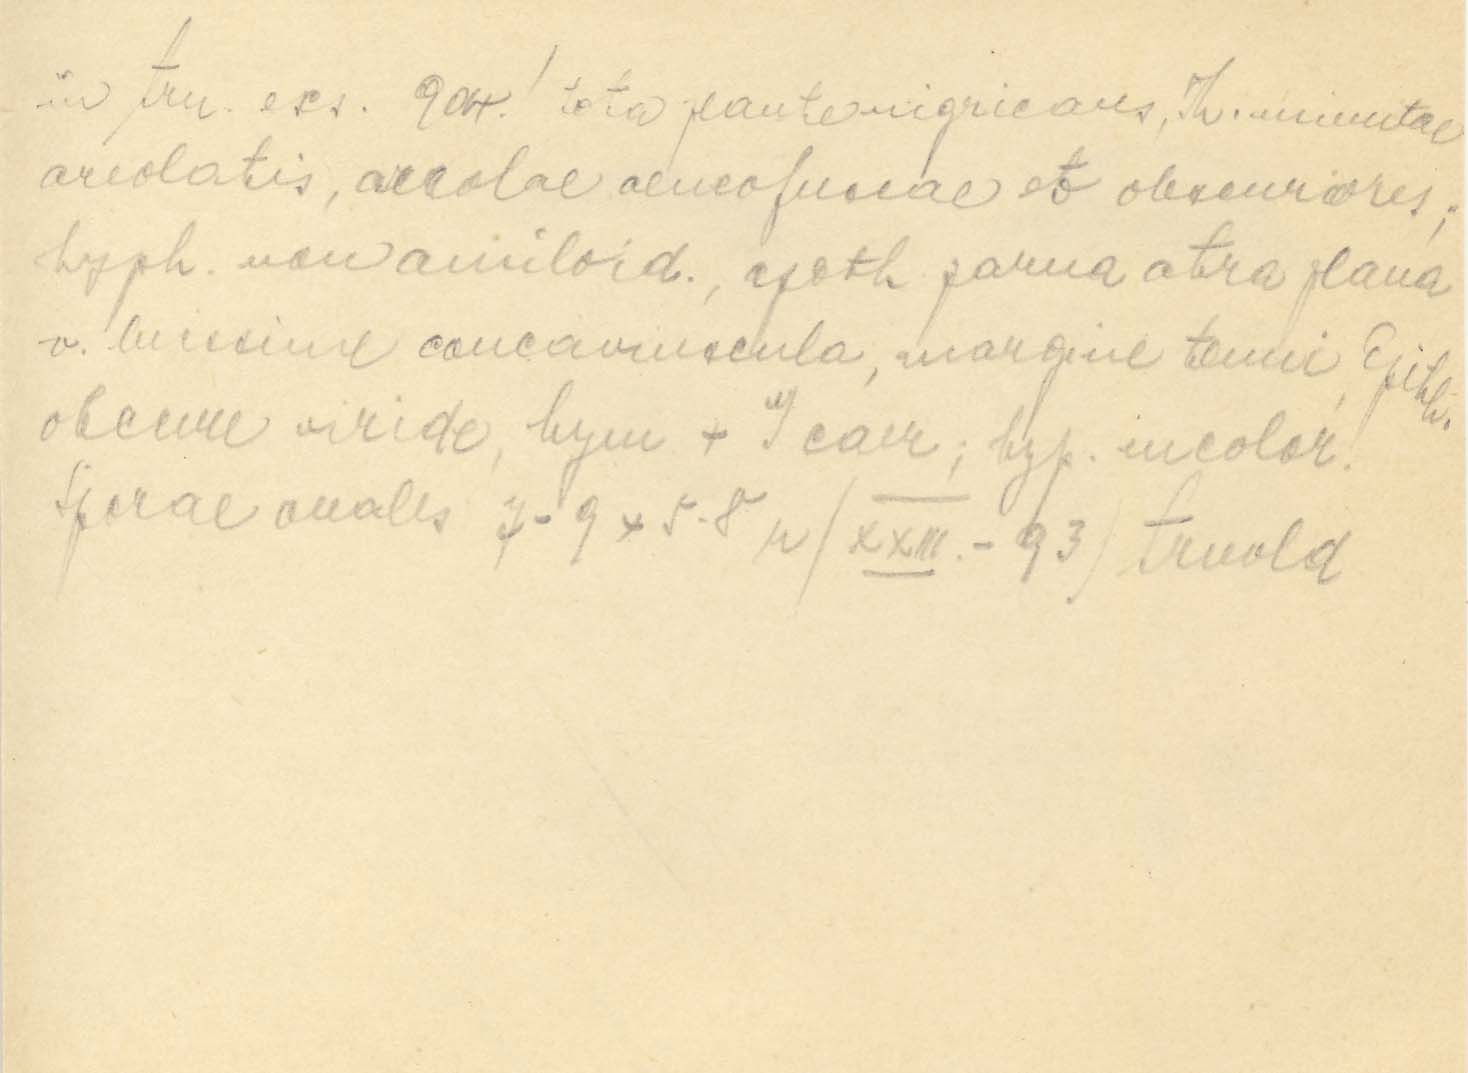 in Arn. exs. ! tota planta nigricans, Th. minutae
areolatis, areolae aeneofuscae et obscuriores;
hyph. non amiloid., apoth parva atra plana
v. levissime concaviuscula, margine tenui, Epith.
obscure viride, hym + J caer; hyp. incolor!
Sporae ovales 7-9 x 5-5 µ / XXIII. - 93) Arnold